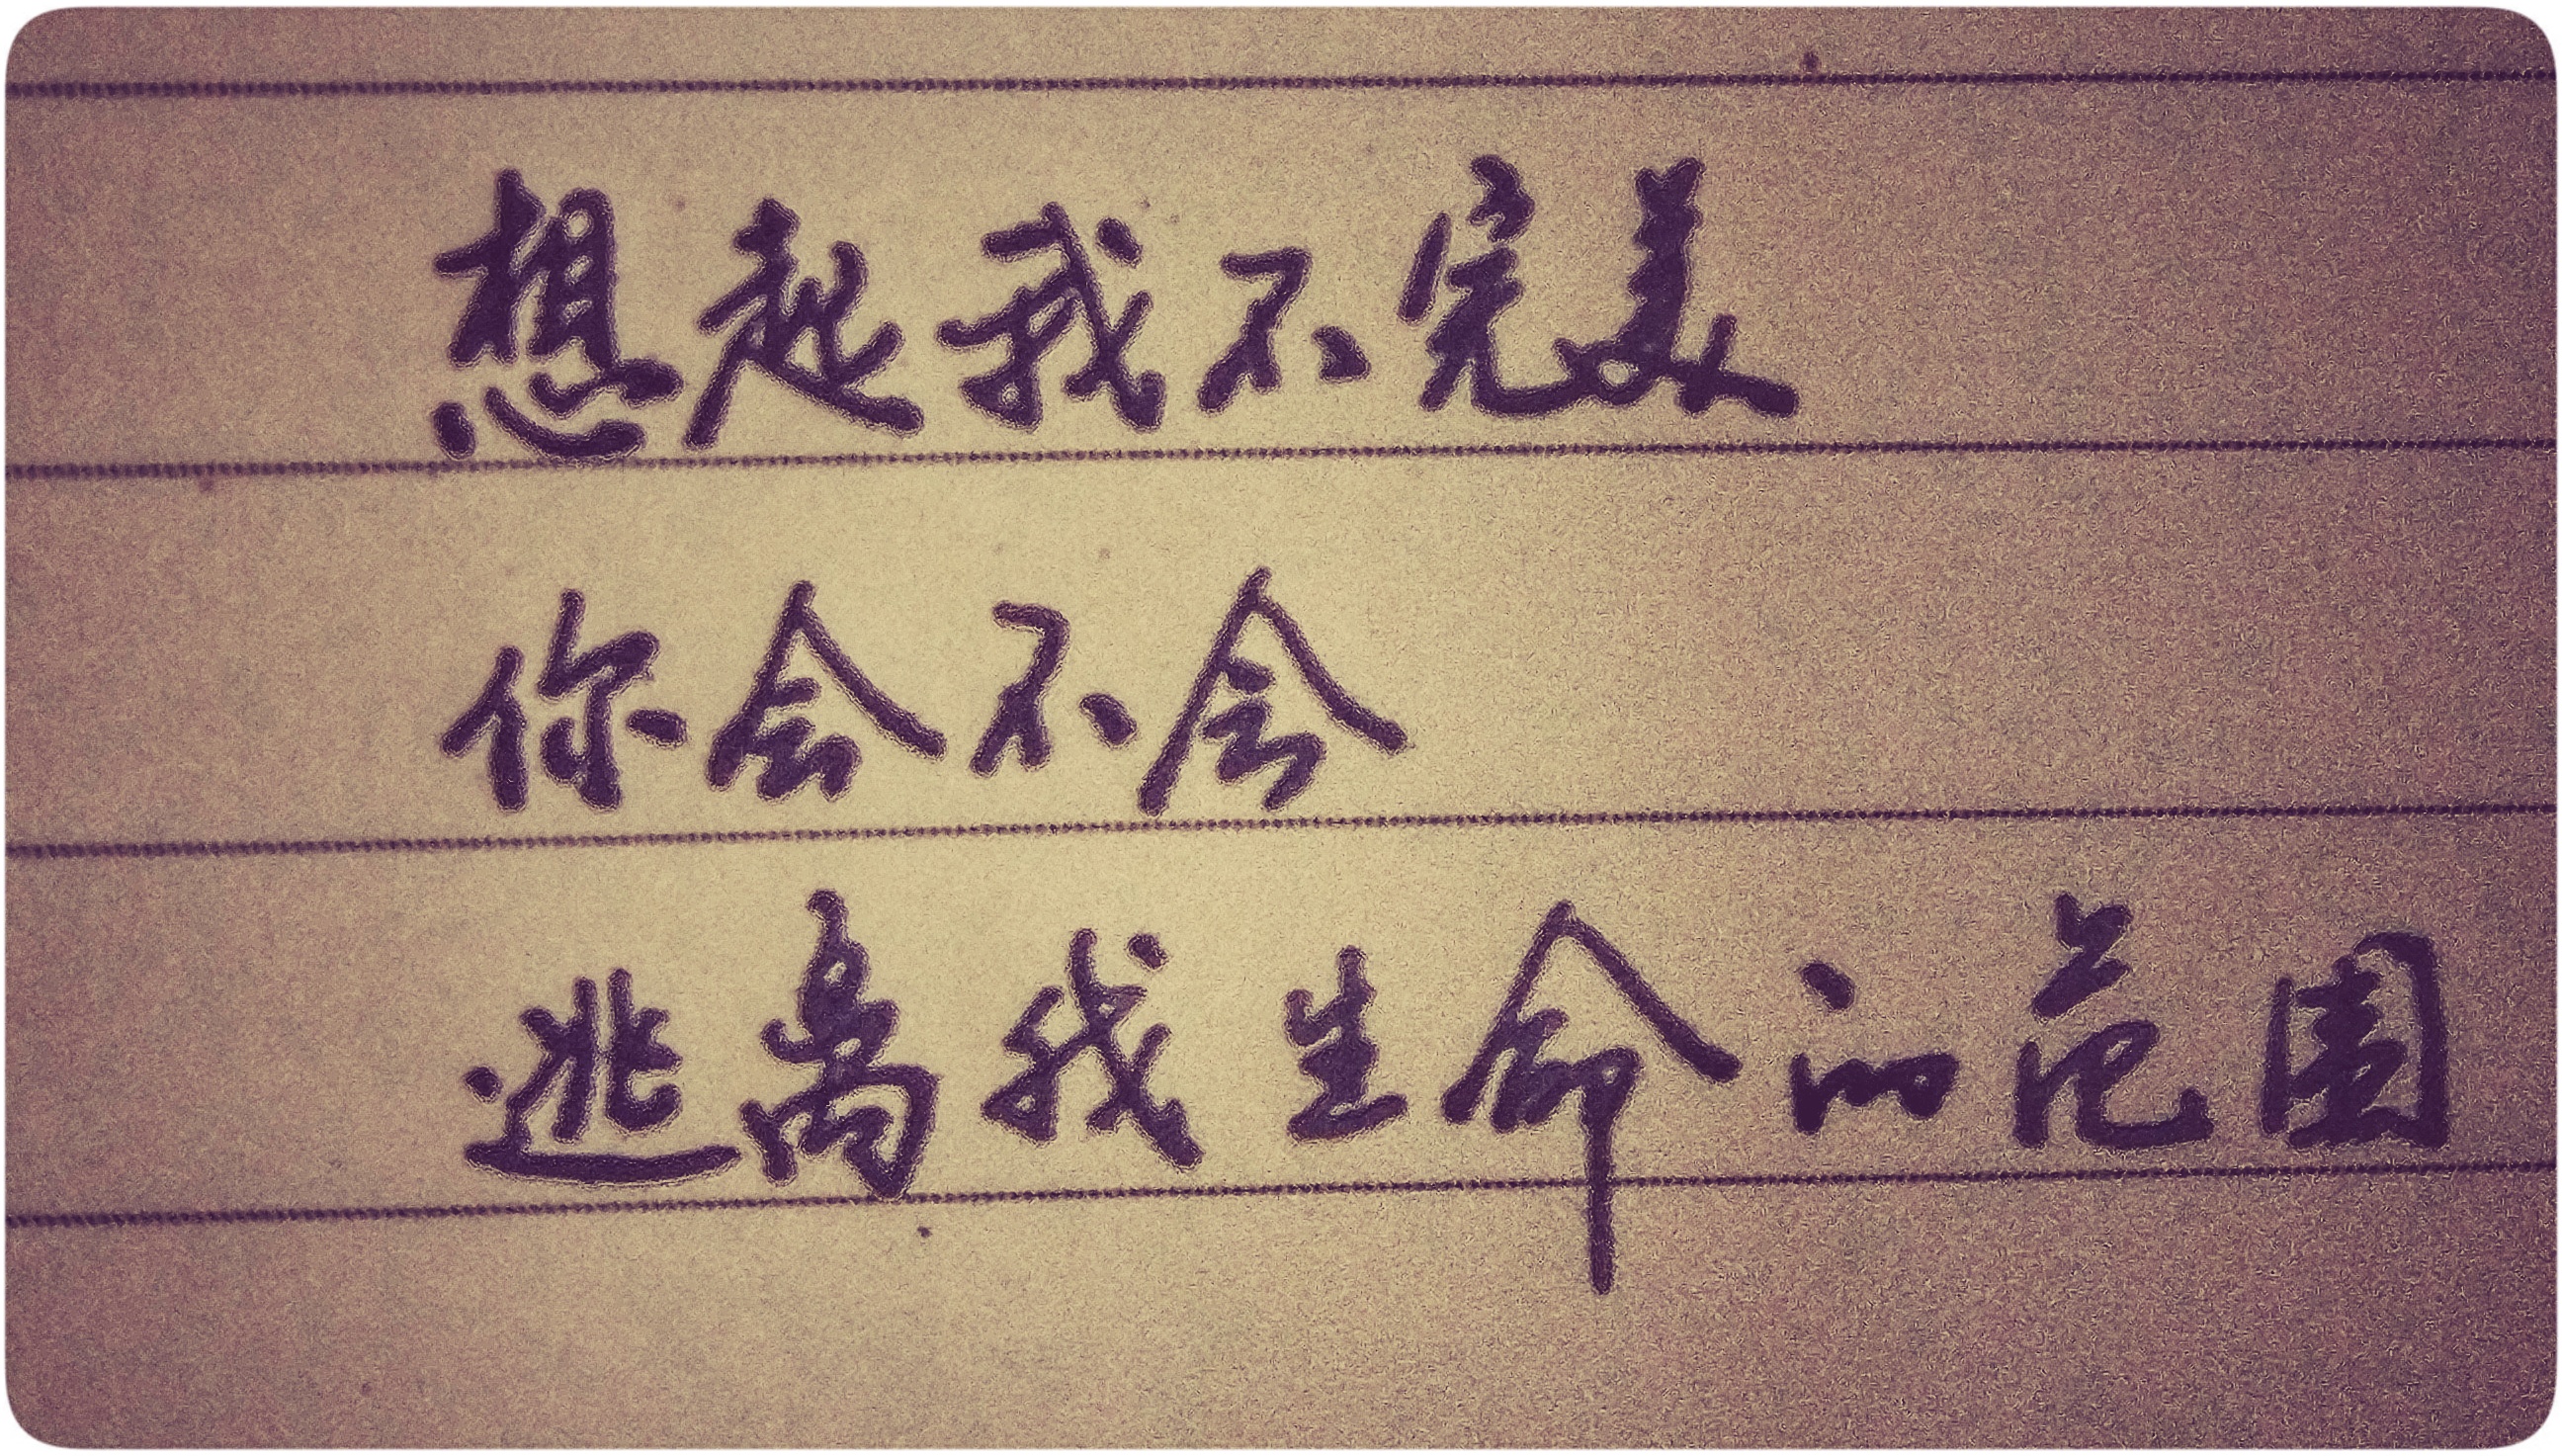 想起我不完美
你会不会
逃离我生命的范围